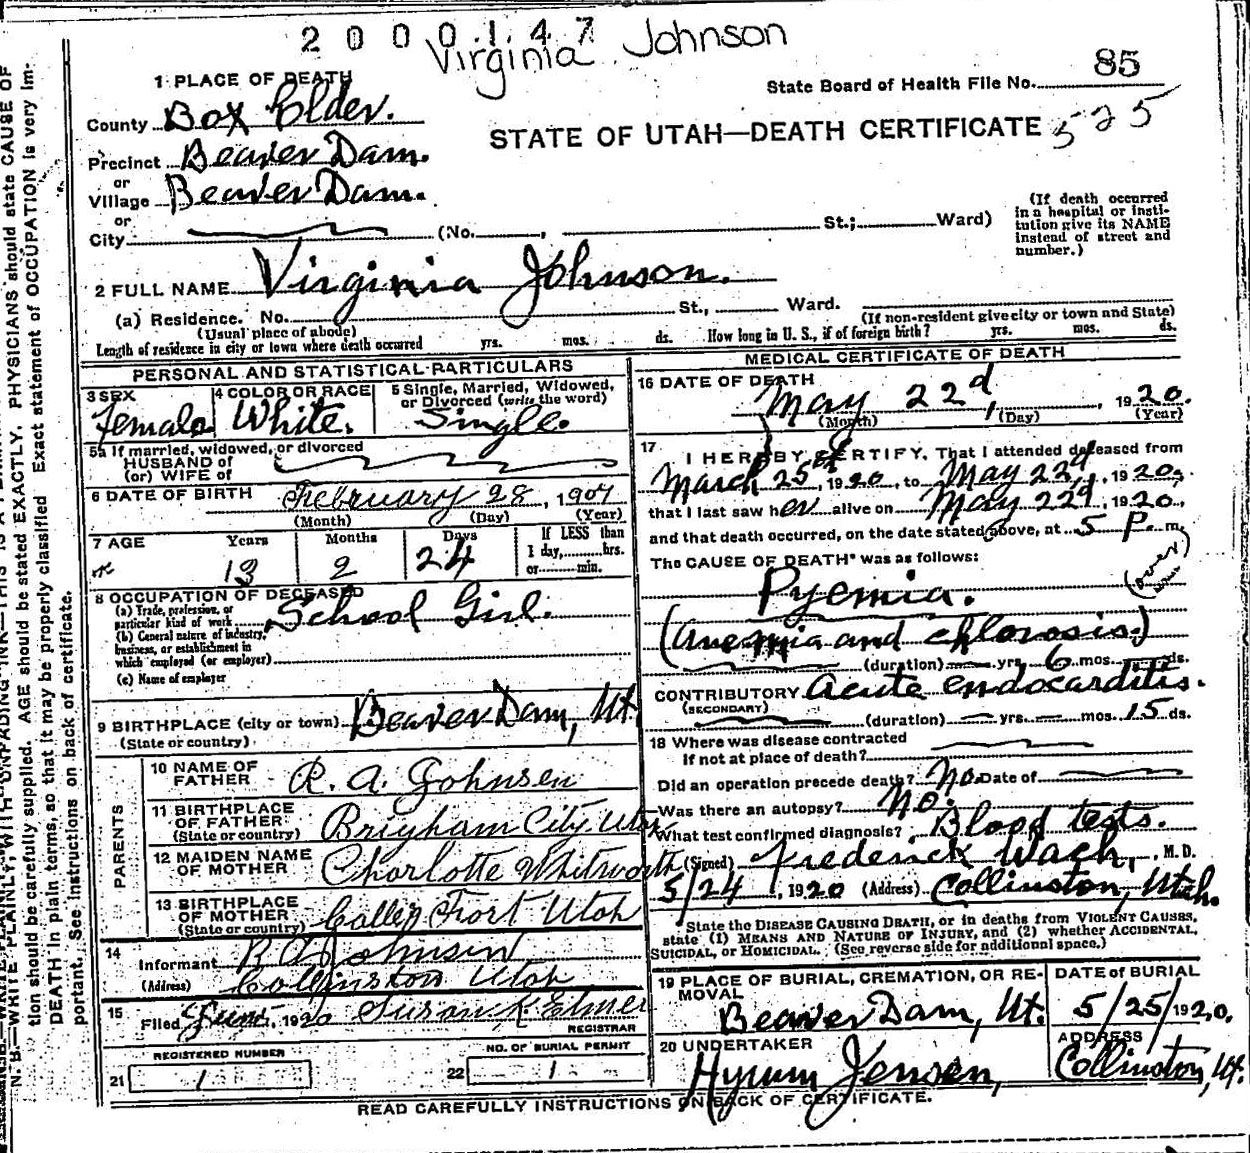 2 0 0 0 1 4 7
Virginia Johnson
85
State Board of Health File No.
525
STATE OF UTAH—DEATH CERTIFICATE
1 PLACE OF DEATH
County Box Elder.
Precinct Beaver Dam.
or
Village Beaver Dam.
or
City (No. , St.; Ward)
(If death occurred
in a hospital or insti-
tution give its NAME
instead of street and
number.)
2 FULL NAME Virginia Johnson.
(a) Residence. No. St., Ward.
(Usual place of abode)
(If non-resident give city or town and State)
Length of residence in city or town where death occurred yrs. mos. ds. How long in U. S., if of foreign birth? yrs. mos. ds.
PERSONAL AND STATISTICAL PARTICULARS
3 SEX
female
4 COLOR OR RACE
White.
5 Single, Married, Widowed,
or Divorced (write the word)
Single.
5a If married, widowed, or divorced
HUSBAND of
(or) WIFE of
6 DATE OF BIRTH February 28, 1907
(Month) (Day) (Year)
7 AGE Years Months Days
13 2 24
If LESS than
1 day, hrs.
or min.
8 OCCUPATION OF DECEASED
(a) Trade, profession, or
particular kind of work School Girl.
(b) General nature of industry,
business, or establishment in
which employed (or employer)
(c) Name of employer
9 BIRTHPLACE (city or town) Beaver Dam, Ut.
(State or country)
PARENTS
10 NAME OF
FATHER R. A. Johnsen
11 BIRTHPLACE
OF FATHER
(State or country) Brigham City Utah
12 MAIDEN NAME
OF MOTHER Charlotte Whitworth
13 BIRTHPLACE
OF MOTHER
(State or country) Calls Fort Utah
14
Informant R A Johnsen
(Address) Collinston Utah
15
Filed June, 1920 Susan K. Elmer
REGISTRAR
REGISTERED NUMBER
21 1
NO. OF BURIAL PERMIT
22 1
MEDICAL CERTIFICATE OF DEATH
16 DATE OF DEATH
May 22d, 1920.
(Month) (Day) (Year)
17 I HEREBY CERTIFY, That I attended deceased from
March 25th, 1920, to May 22d, 1920,
that I last saw her alive on May 22d, 1920,
and that death occurred, on the date stated above, at 5 P. m.
The CAUSE OF DEATH* was as follows:
(over)
Pyemia.
(anemia and chlorosis.)
(duration) yrs. 6 mos. ds.
CONTRIBUTORY Acute endocarditis.
(SECONDARY)
(duration) yrs. mos. 15 ds.
18 Where was disease contracted
if not at place of death?
Did an operation precede death? No. Date of
Was there an autopsy? No.
What test confirmed diagnosis? Blood tests.
(Signed) Frederick Wach, M. D.
5/24, 1920 (Address) Collinston, Utah.
State the DISEASE CAUSING DEATH, or in deaths from VIOLENT CAUSES,
state (1) MEANS AND NATURE OF INJURY, and (2) whether ACCIDENTAL,
SUICIDAL, or HOMICIDAL. (See reverse side for additional space.)
19 PLACE OF BURIAL, CREMATION, OR RE-
MOVAL
Beaver Dam, Ut.
DATE of BURIAL
5/25/1920.
20 UNDERTAKER
Hyrum Jensen,
ADDRESS
Collinston, Ut.
READ CAREFULLY INSTRUCTIONS ON BACK OF CERTIFICATE.
N. B.—WRITE PLAINLY, WITH UNFADING INK—THIS IS A
tion should be carefully supplied. AGE should be stated EXACTLY. PHYSICIANS should state CAUSE OF
DEATH in plain terms, so that it may be properly classified. Exact statement of OCCUPATION is very im-
portant. See instructions on back of certificate.